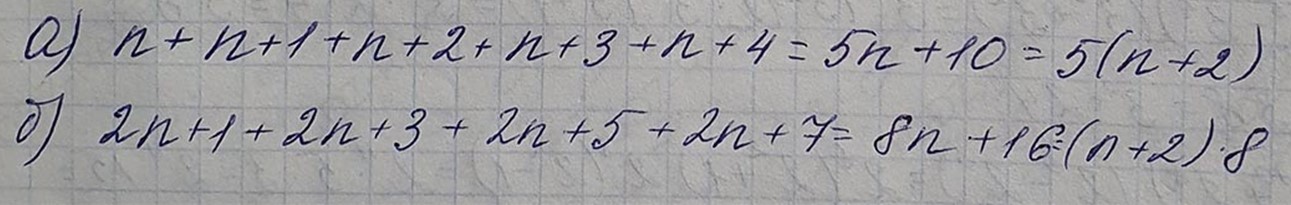 а) n + n + 1 + n + 2 + n + 3 + n + 4 = 5n + 10 = 5(n + 2)
б) 2n + 1 + 2n + 3 + 2n + 5 + 2n + 7 = 8n + 16 = (n + 2) · 8